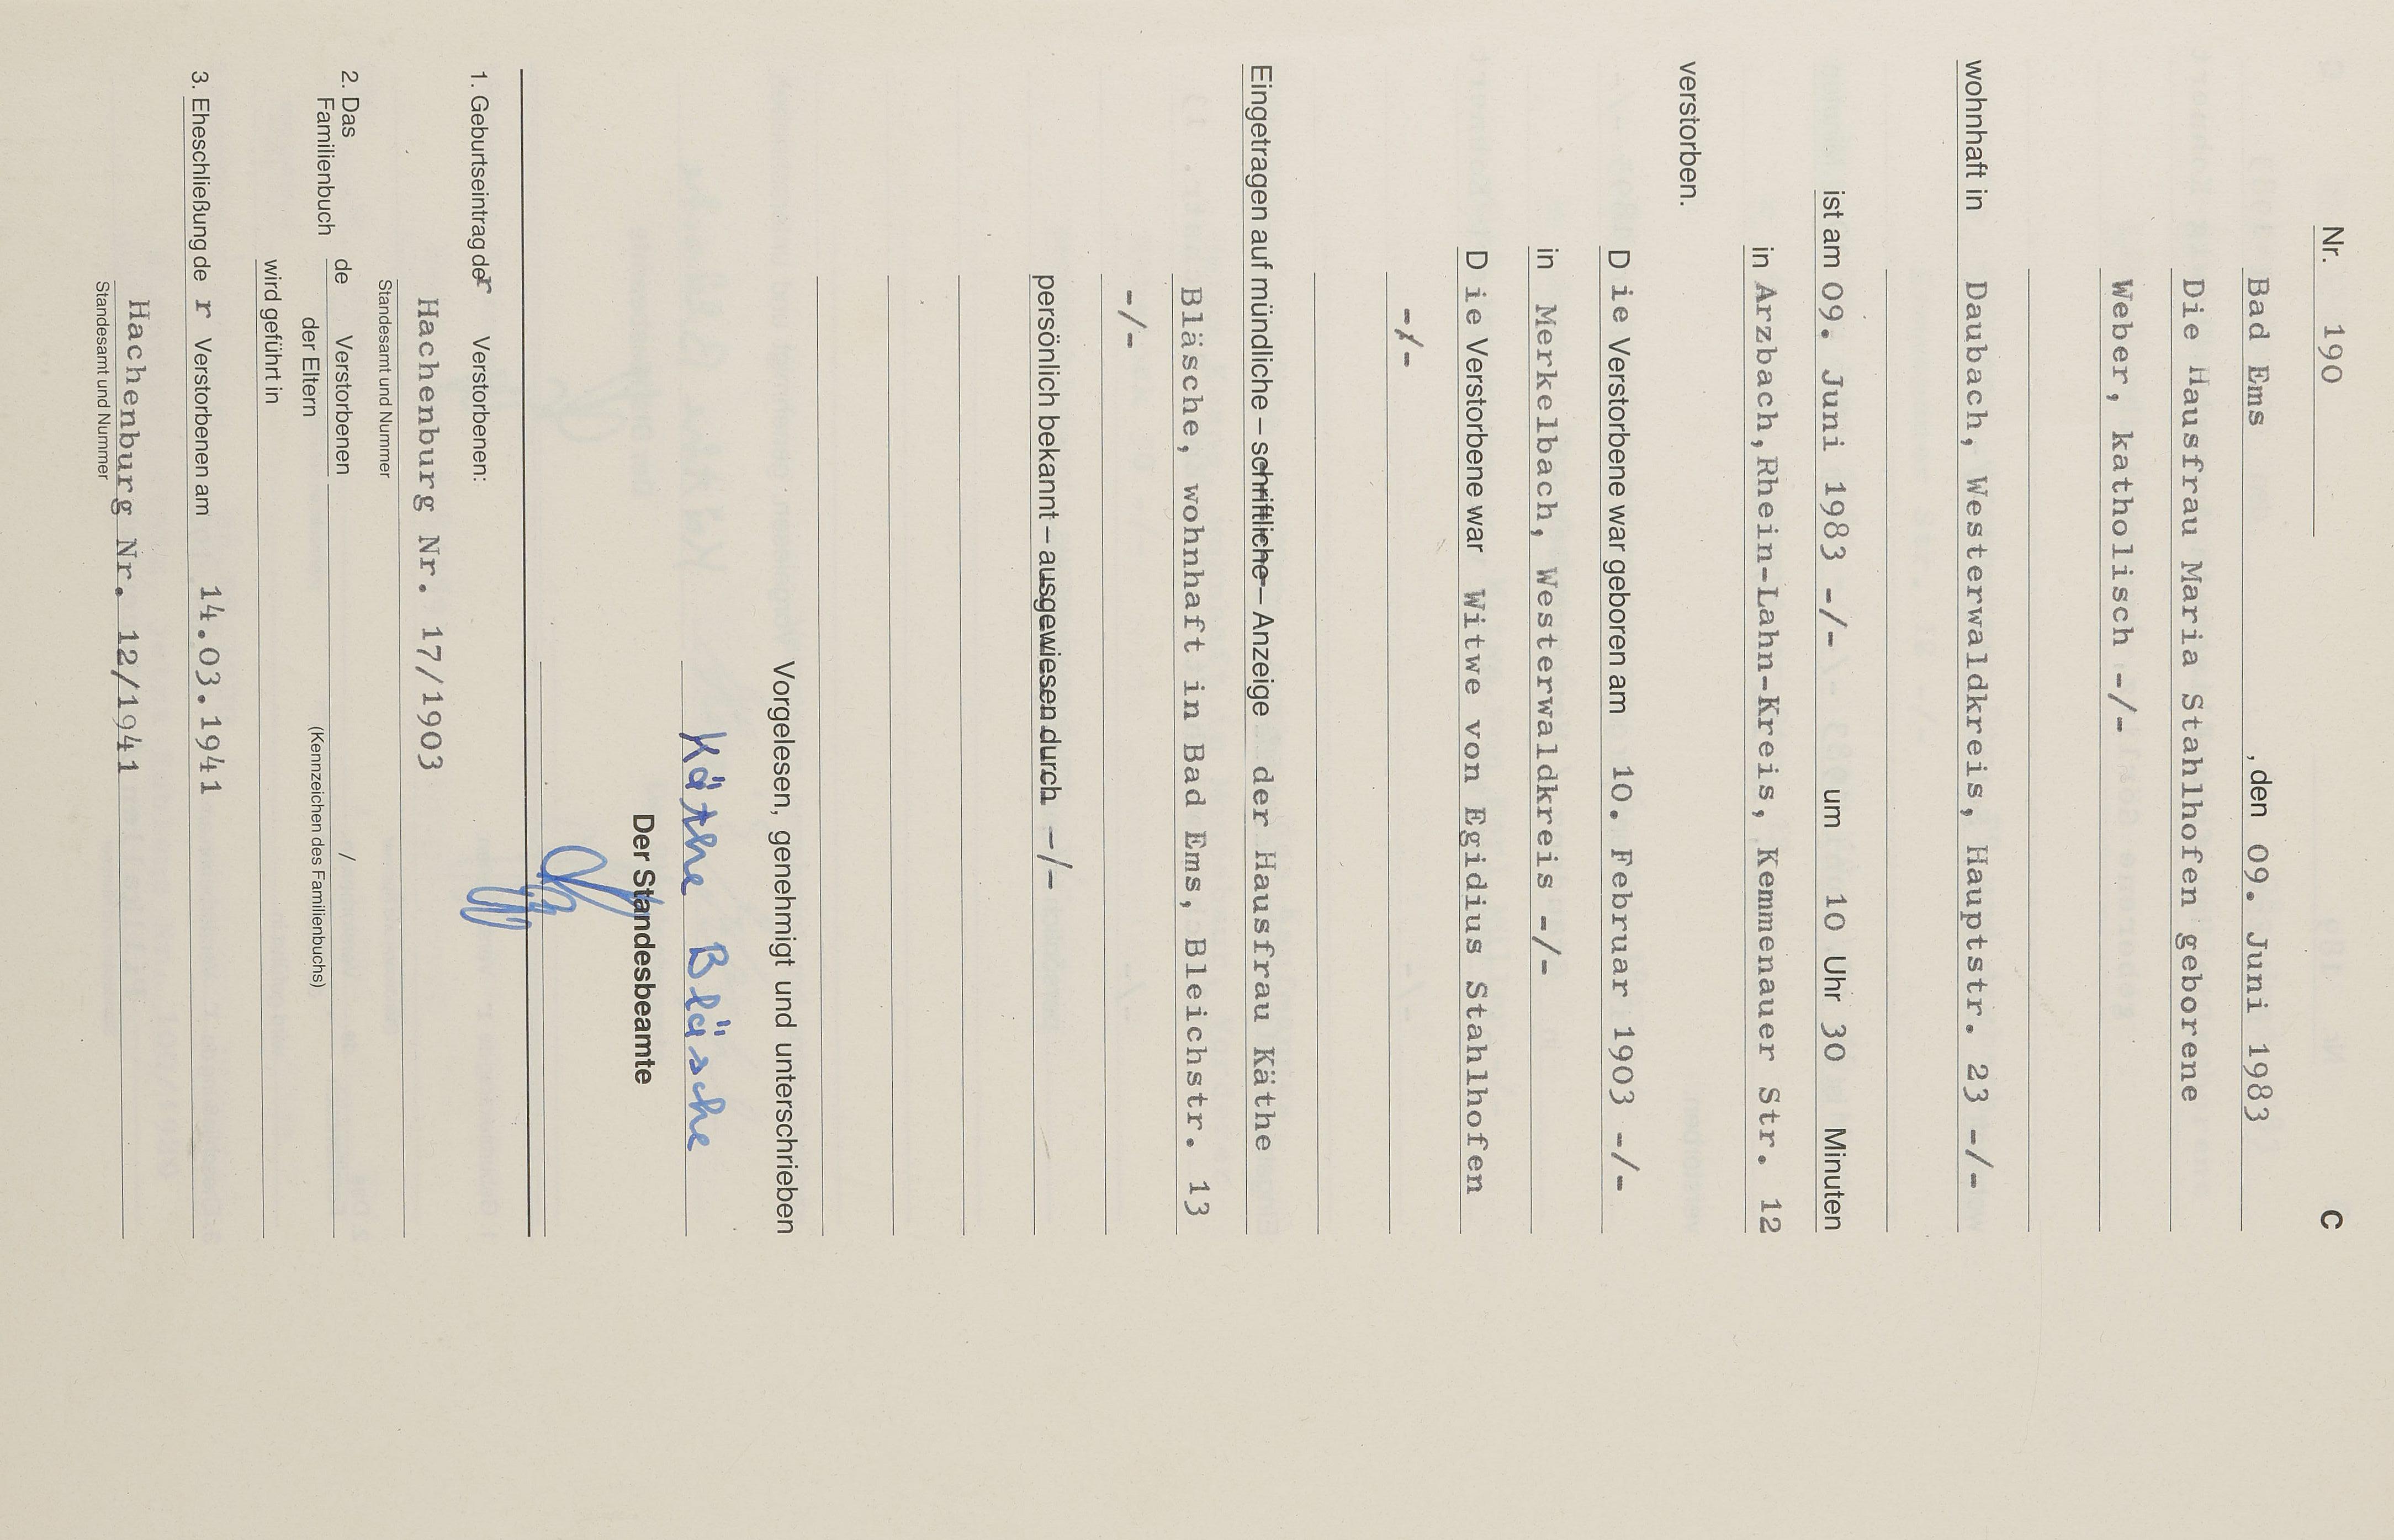 C
Nr. 190
Bad Ems , den 09. Juni 1983
Die Hausfrau Maria Stahlhofen geborene
Weber, katholisch -/-
wohnhaft in Daubach, Westerwaldkreis, Hauptstr. 23 -/-
ist am 09. Juni 1983 -/- um 10 Uhr 30 Minuten
in Arzbach,Rhein-Lahn-Kreis, Kemmenauer Str. 12
verstorben.
D ie Verstorbene war geboren am 10. Februar 1903 -/-
in Merkelbach, Westerwaldkreis -/-
D ie Verstorbene war Witwe von Egidius Stahlhofen
-/-
Eingetragen auf mündliche – schriftliche – Anzeige der Hausfrau Käthe
Bläsche, wohnhaft in Bad Ems, Bleichstr. 13
-/-
persönlich bekannt – ausgewiesen durch -/-
Vorgelesen, genehmigt und unterschrieben
Käthe Bläsche
Der Standesbeamte
1. Geburtseintrag der Verstorbenen:
Hachenburg Nr. 17/1903
Standesamt und Nummer
2. Das Familienbuch de Verstorbenen /
der Eltern (Kennzeichen des Familienbuchs)
wird geführt in
3. Eheschließung de r Verstorbenen am 14.03.1941
Hachenburg Nr. 12/1941
Standesamt und Nummer